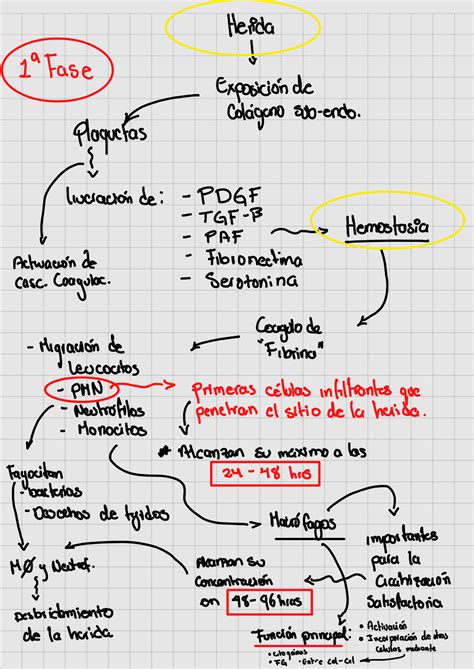 Herida
1ª Fase
Exposición de
Colágeno sub-endo.
Plaquetas
- PDGF
- TGF-B
- PAF
- Fibronectina
- Serotonina
Hemostasia
Activación de
Casc. Coagulac.
Coagulo de
"Fibrina"
- Migración de
leucocitos
- PMN
- Neutrófilos
- Monocitos
Primeras células infiltrantes que
penetran el sitio de la herida.
* Alcanzan su máximo a las
24 - 48 hrs
Fagocitan
- bacterias
- Desechos de tejidos
Macrófagos
importantes
para la
Cicatrización
Satisfactoria
MØ y Neutrof.
Desbridamiento
de la herida
Alcanzan su
Concentración
en 48-96 hrs
Función principal:
• Activación
• Incorporación de otras
células mediante
• Citoquinas
• FG
• Entre cel-cel